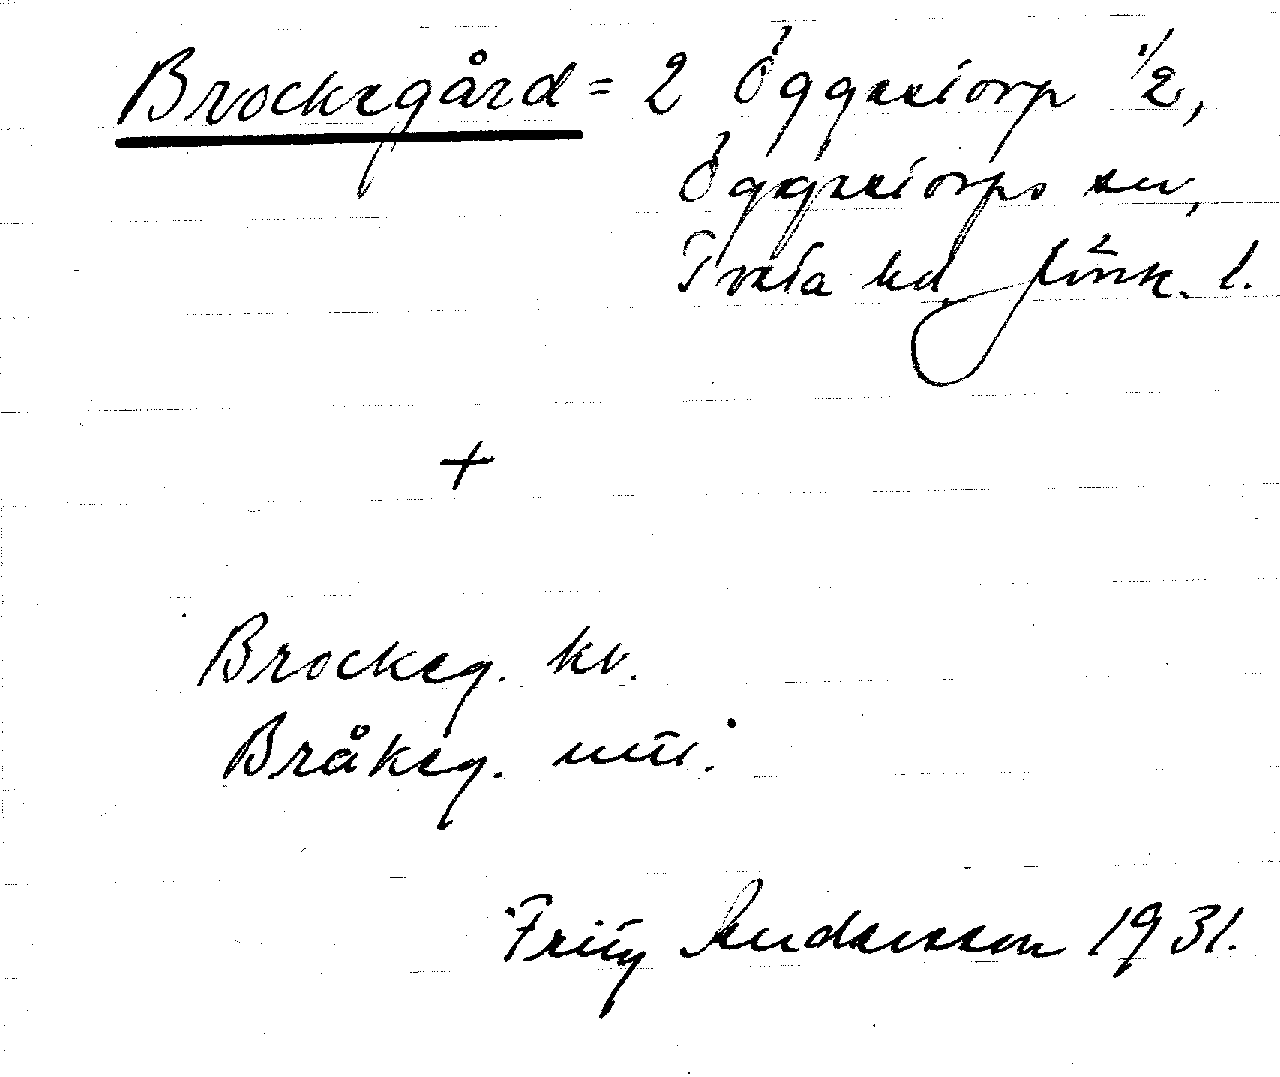 Brockegård = 2 Öggestorp 1/2,
Öggestorps sn,
Tveta hd, Jönk. l.
+
Brockeg. kv.
Bråkeg. utt.
Fritz Andersson 1931.